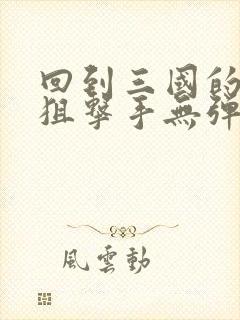 回到三國的
狙擊手無彈
風雲動